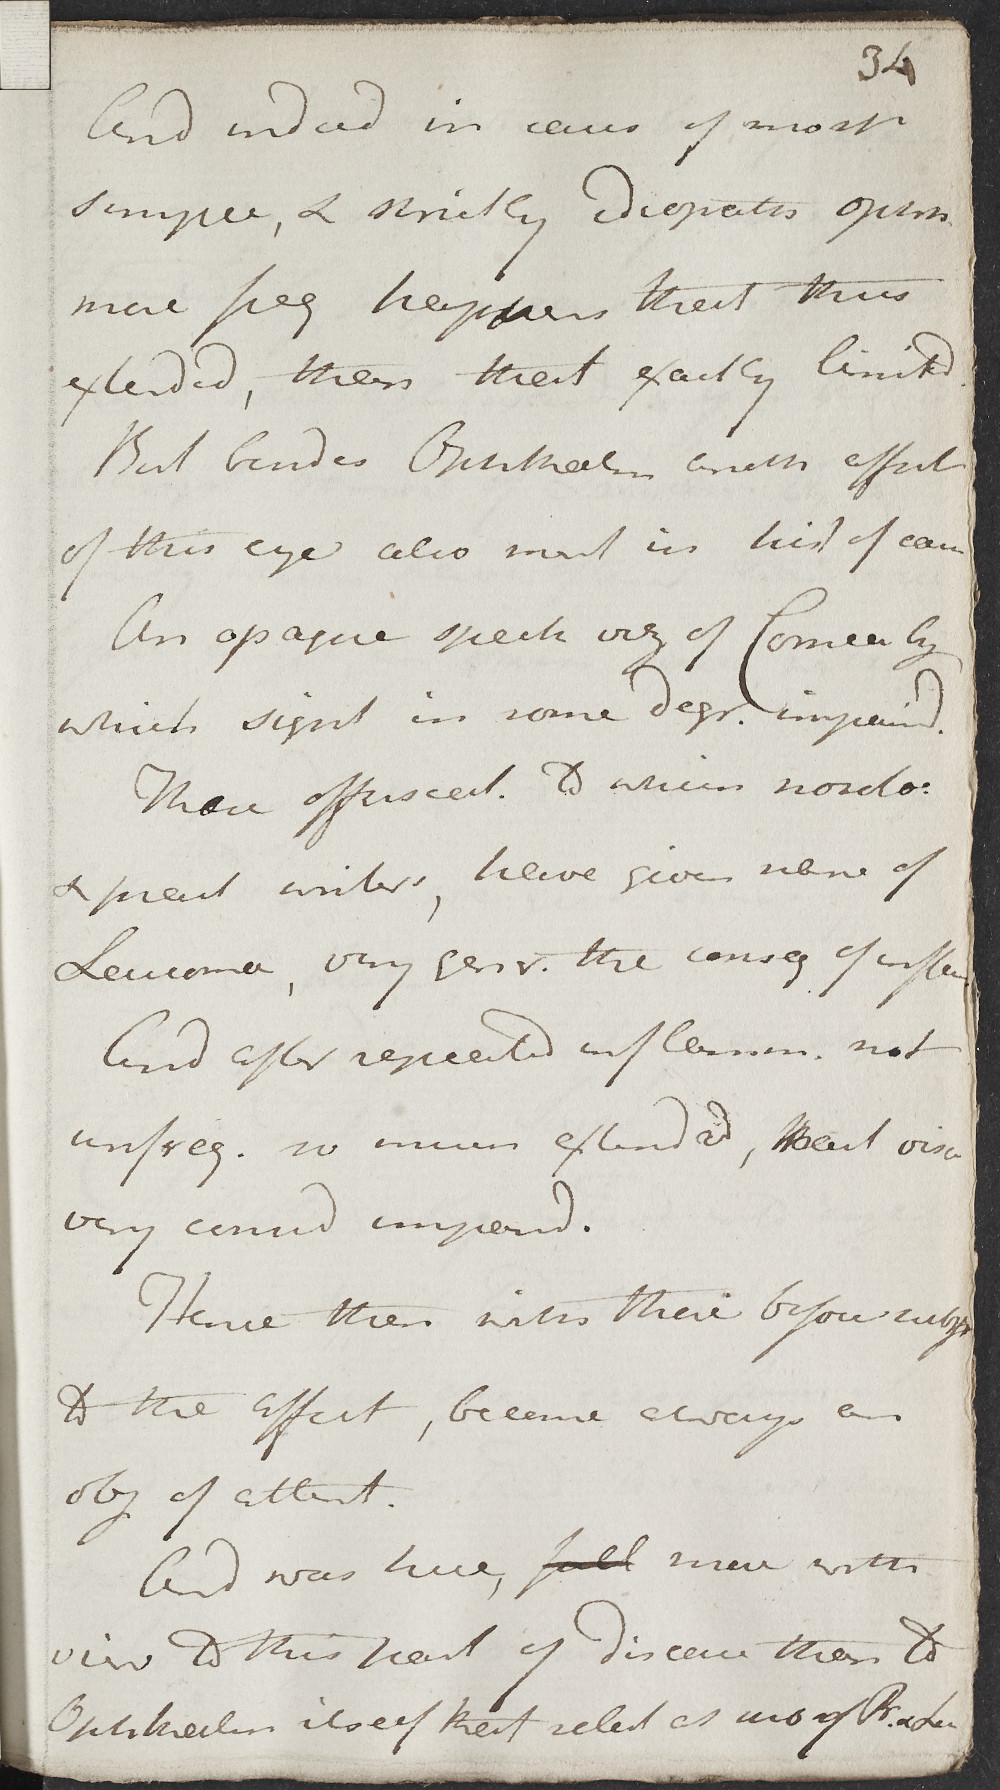 34
And indeed in cases of most
simple, & strictly Idiopath ophth
more freq happens that thus
extended, than that exactly limitd.
But besides Ophthalm anoth affect
of this eye also ment in hist of case
An opaque speck viz of Cornea by
which sight in some degr. impaird.
These offuscat. To which nosolo:
& pract writers, have given name of
Leucoma, very genr. the conseq of inflam
And after repeated inflamm. not
unfreq. so much extended, that visn
very consid impaird.
Hence then with those before subj
to the affect, become always an
obj of attent.
And was here, full more with
view to this part of disease than to
Ophthalm itself that select as mo of